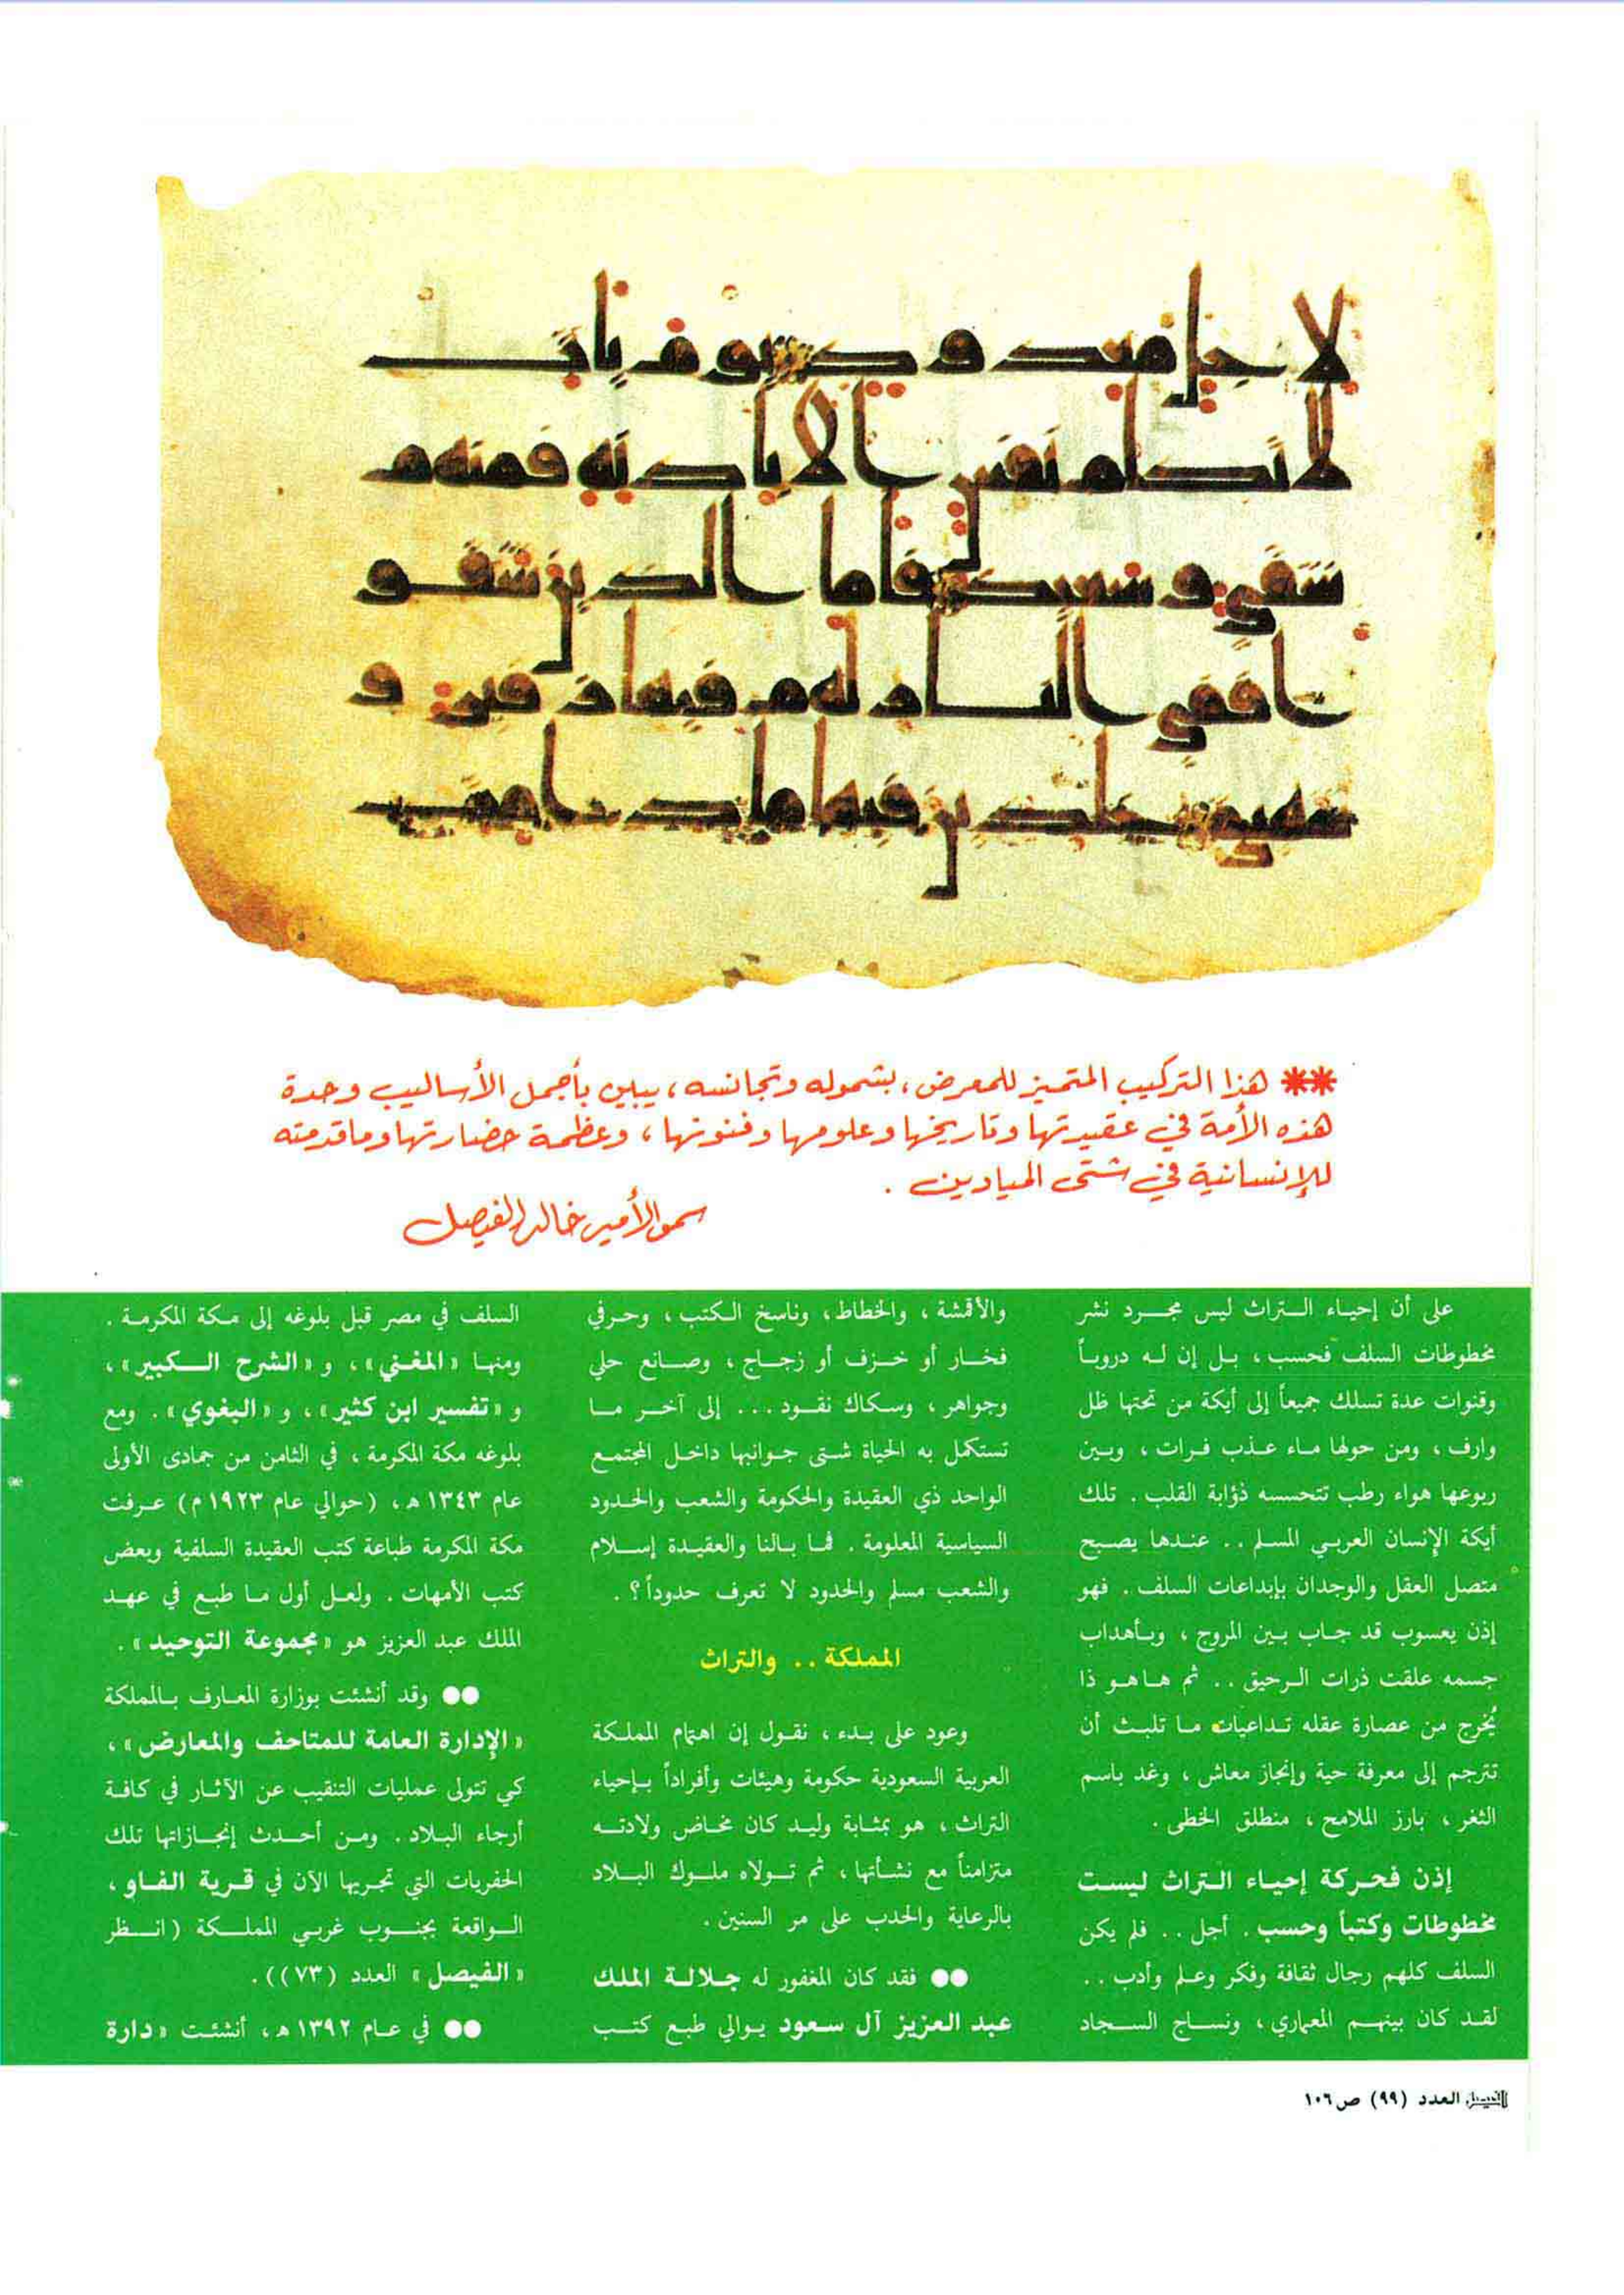 لاجل معدود يوم يات
لا تكلم نفس الا باذنه فمنهم
شقي وسعيد فاما الذين شقو
ا ففي النار لهم فيها زفير و
شهيق خلدين فيها ما دامت
** هذا التركيب المتميز للمعرض، بشموله وتجانسه، يبين بأجمل الأساليب وحدة
هذه الأمة في عقيدتها وتاريخها وعلومها وفنونها، وعظمة حضارتها وما قدمته
للإنسانية في شتى الميادين .
سمو الأمير خالد الفيصل
على أن إحياء التراث ليس مجرد نشر
مخطوطات السلف فحسب، بل إن له دروباً
وقنوات عدة تسلك جميعاً إلى أيكة من تحتها ظل
وارف، ومن حولها ماء عذب فرات، وبين
ربوعها هواء رطب تتحسسه ذؤابة القلب . تلك
أيكة الإنسان العربي المسلم .. عندها يصبح
متصل العقل والوجدان بإبداعات السلف . فهو
إذن يعسوب قد جاب بين المروج، وبأهداب
جسمه علقت ذرات الرحيق .. ثم ها هو ذا
يُخرج من عصارة عقله تداعيات ما تلبث أن
تترجم إلى معرفة حية وإنجاز معاش، وغد باسم
الثغر، بارز الملامح، منطلق الخطى .
إذن فحركة إحياء التراث ليست
مخطوطات وكتباً وحسب . أجل .. فلم يكن
السلف كلهم رجال ثقافة وفكر وعلم وأدب ..
لقد كان بينهم المعماري، ونساج السجاد
والأقمشة، والخطاط، وناسخ الكتب، وحرفي
فخار أو خزف أو زجاج، وصانع حلي
وجواهر، وسكاك نقود ... إلى آخر ما
تستكمل به الحياة شتى جوانبها داخل المجتمع
الواحد ذي العقيدة والحكومة والشعب والحدود
السياسية المعلومة . فما بالنا والعقيدة إسلام
والشعب مسلم والحدود لا تعرف حدوداً؟ .
المملكة .. والتراث
وعود على بدء، نقول إن اهتمام المملكة
العربية السعودية حكومة وهيئات وأفراداً بإحياء
التراث، هو بمثابة وليد كان مخاض ولادته
متزامناً مع نشأتها، ثم تولاه ملوك البلاد
بالرعاية والحدب على مر السنين .
●● فقد كان المغفور له جلالة الملك
عبد العزيز آل سعود يوالي طبع كتب
السلف في مصر قبل بلوغه إلى مكة المكرمة .
ومنها «المغني»، و «الشرح الكبير»،
و «تفسير ابن كثير»، و «البغوي» . ومع
بلوغه مكة المكرمة، في الثامن من جمادى الأولى
عام ١٣٤٣ هـ، (حوالي عام ١٩٢٣ م) عرفت
مكة المكرمة طباعة كتب العقيدة السلفية وبعض
كتب الأمهات . ولعل أول ما طبع في عهد
الملك عبد العزيز هو «مجموعة التوحيد» .
●● وقد أنشئت بوزارة المعارف بالمملكة
«الإدارة العامة للمتاحف والمعارض»،
كي تتولى عمليات التنقيب عن الآثار في كافة
أرجاء البلاد . ومن أحدث إنجازاتها تلك
الحفريات التي تجريها الآن في قرية الفاو،
الواقعة بجنوب غربي المملكة (انظر
«الفيصل» العدد (٧٣)) .
●● في عام ١٣٩٢ هـ، أنشئت «دارة
الفيصل العدد (٩٩) ص ١٠٦